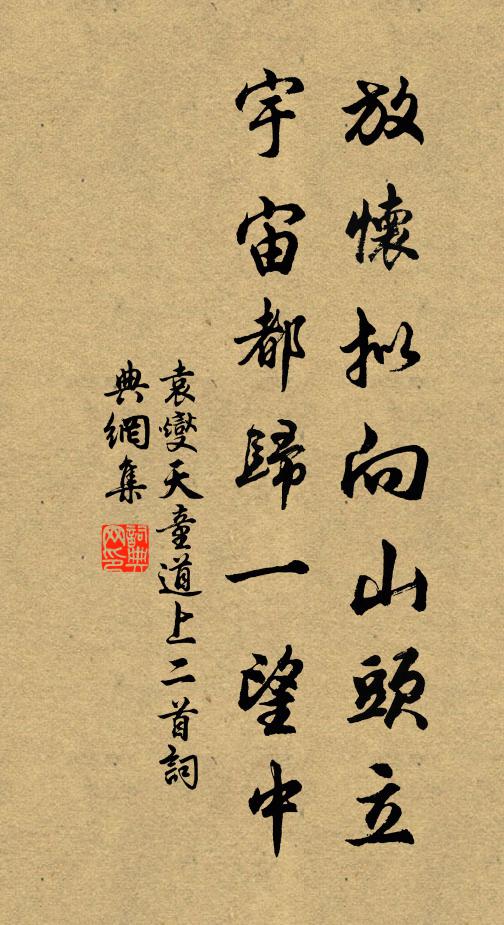 放懷拟向山頭立
宇宙都歸一望中
袁燮天童道上二首詞
典網集
詞典網印